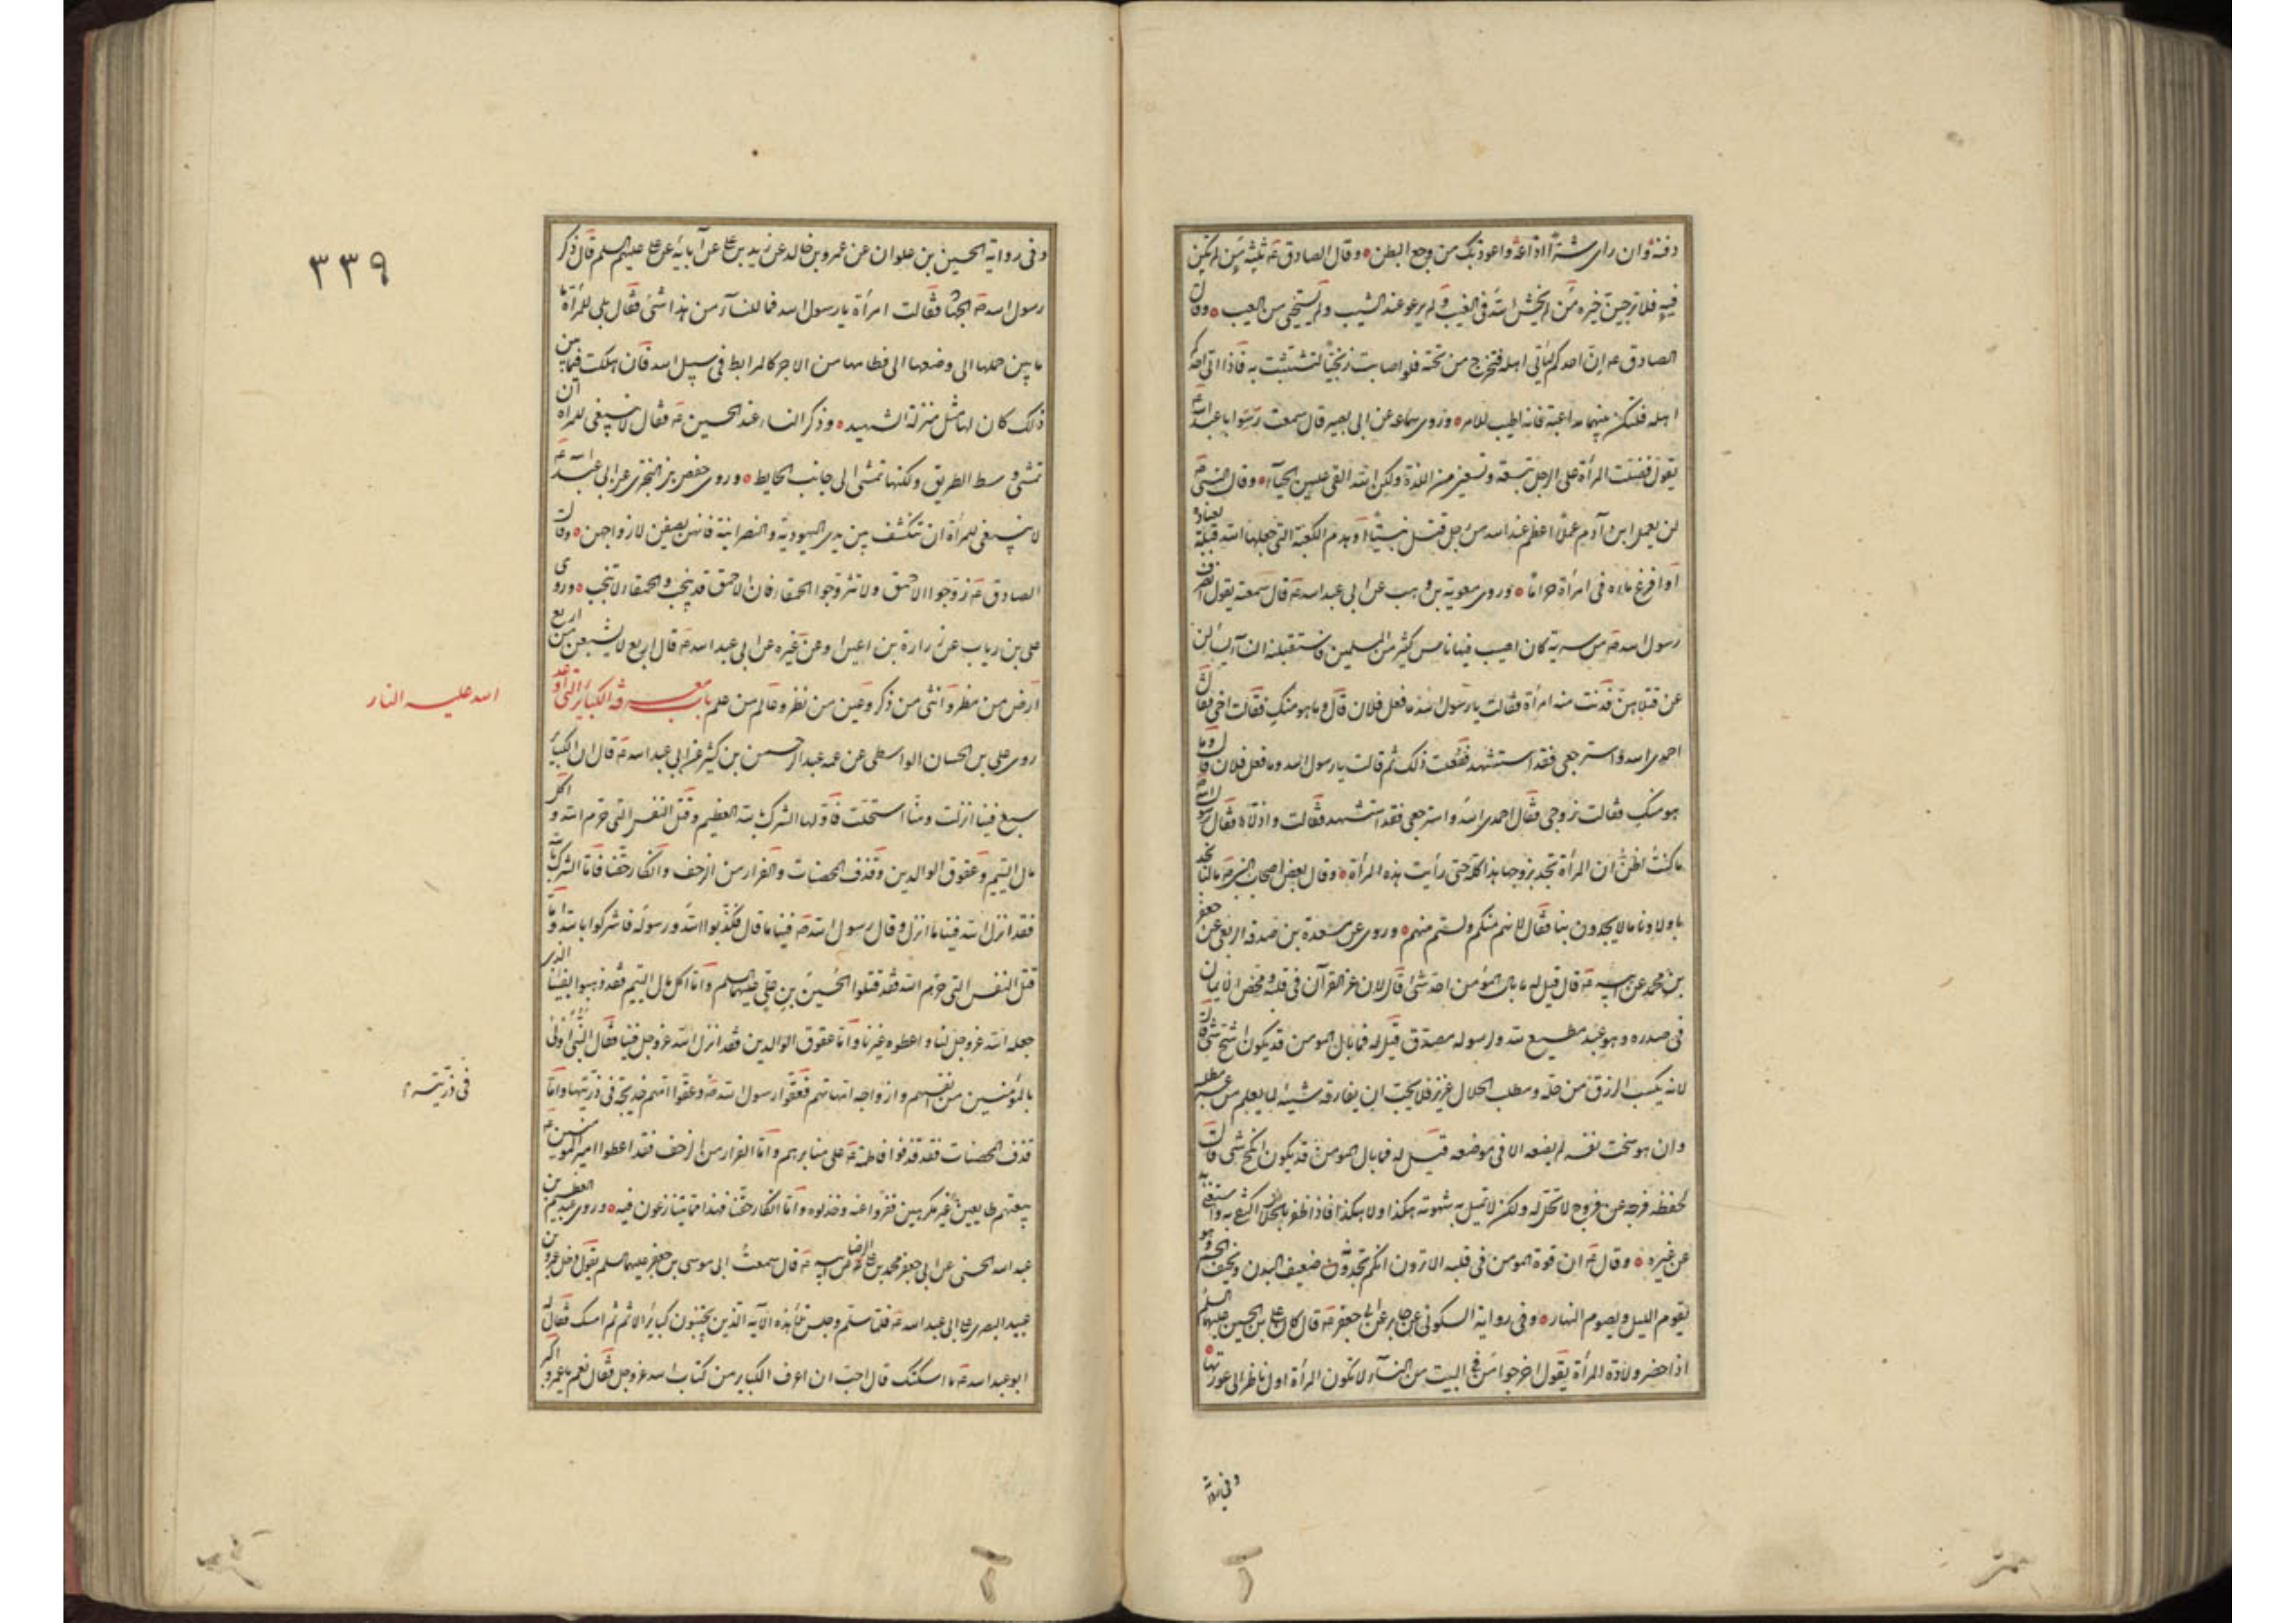 دفنه وان رای شرّا اذاعه واعوذ بک من وجع البطن وقال الصادق عه ثلثه من لم تکن
فیه فلا یرجی خیره من لم یخش الله فی الغیب ولم یرعو عند الشیب ولم یستحی من العیب وقال
الصادق عه ان احدکم لیأتی اهله فتخرج من تحته فلو اصابت زنجیا لتشبثت به فاذا اتی احدکم
اهله فلیکن بینهما مداعبة فانه اطیب للامر وروی سماعه عن ابی بصیر قال سمعت ابا عبد الله عه
یقول فضلت المرأة علی الرجل بتسعة وتسعین من اللذة ولکن الله القی علیهن الحیآء وقال النبی صه
لن یعمل ابن آدم عملا اعظم عند الله من رجل قتل نبیا او هدم الکعبة التی جعلها الله قبلة لعباده
او افرغ ماءه فی امرأة حراما وروی معویة بن وهب عن ابی عبد الله عه قال سمعته یقول انصرف
رسول الله صه من سریة کان اصیب فیها ناس کثیر من المسلمین فاستقبلته النسآء یسألن
عن قتلاهن فدنت منه امرأة فقالت یا رسول الله ما فعل فلان قال وما هو منک فقالت اخی فقال
احمدی الله واسترجعی فقد استشهد ففعلت ذلک ثم قالت یا رسول الله وما فعل فلان قال وما
هو منک فقالت زوجی فقال احمدی الله واسترجعی فقد استشهد فقالت واذلاه فقال رسول الله
ما کنت اظن ان المرأة تجد بزوجها هذا کله حتی رأیت هذه المرأة وقال بعض اصحاب النبی صه ما لنا نجد
باولادنا ما لا یجدون بنا فقال لانهم منکم ولستم منهم وروی عن مسعدة بن صدقه الربعی عن جعفر
بن محمد عن ابیه عه قال قیل له ما بال المؤمن احد شئ قال لان عز القرآن فی قلبه ومحض الایمان
فی صدره وهو عبد مطیع لله ولرسوله مصدق قیل له فما بال المومن قد یکون اشح شئ قال
لانه یکسب الرزق من حله ومطلب الحلال عزیز فلا یحب ان یفارقه شیئه لما یعلم من عسر مطلبه
وان هو سخت نفسه لم یضعه الا فی موضعه قیل له فما بال المومن قد یکون انکح شئ قال
لحفظه فرجه عن فروج لا تحل له ولکن لا تمیل به شهوته هکذا ولا هکذا فاذا ظفر بالحلال اکتفی به واستغنی به
عن غیره وقال عه ان قوة المومن فی قلبه الا ترون انکم تجدونه ضعیف البدن ونحیف الجسم وهو
یقوم اللیل ویصوم النهار وفی روایة السکونی عن جابر عن ابی جعفر عه قال کان علی بن الحسین علیهما السلم
اذا حضر ولادة المرأة یقول اخرجوا من فی البیت من النسآء لا تکون المرأة اول ناظر الی عورتها
وفی روایة
٣٣٩
وفی روایة الحسین بن علوان عن عمرو بن خالد عن زید بن علی عن آبائه عن علی علیهم السلم قال ذکر
رسول الله صه الجهاد فقالت امرأة یا رسول الله فما للنسآء من هذا شئ فقال بلی للمرأة ما
ما بین حملها الی وضعها الی فطامها من الاجر کالمرابط فی سبیل الله فان هلکت فیما بین
ذلک کان لها مثل منزلة الشهید وذکر النساء عند الحسین عه فقال لا ینبغی للمراة ان
تمشی وسط الطریق ولکنها تمشی الی جانب الحایط وروی حفص بن البختری عن ابی عبد الله عه
لا ینبغی للمرأة ان تنکشف بین یدی الیهودیة والنصرانیة فانهن یصفن لازواجهن وقال
الصادق عه زوجوا الاحمق ولا تزوجوا الحمقاء فان الاحمق قد ینجب والحمقاء لا تنجب وروی
علی بن رباب عن زرارة بن اعین وعن غیره عن ابی عبد الله عه قال اربع لا یشبعن من اربع
ارض من مطر وانثی من ذکر وعین من نظر وعالم من علم باب معرفة الکبائر التی اوعد
الله علیه النار
روی علی بن الحسان الواسطی عن عمه عبد الرحمن بن کثیر عن ابی عبد الله عه قال ان الکبائر
سبع فینا انزلت ومنا استحلت فاولها الشرک بالله العظیم وقتل النفس التی حرم الله واکل
مال الیتیم وعقوق الوالدین وقذف المحصنات والفرار من الزحف وانکار حقنا فاما الشرک بالله
فقد انزل الله فینا ما انزل وقال رسول الله صه فینا ما قال فکذبوا الله ورسوله فاشرکوا بالله واما
قتل النفس التی حرم الله فقد قتلوا الحسین بن علی علیهما السلم واما اکل مال الیتیم فقد ذهبوا بفیئنا الذی
جعله الله عز وجل لنا واعطوه غیرنا واما عقوق الوالدین فقد انزل الله عز وجل فینا فقال النبی اولی
بالمؤمنین من انفسهم وازواجه امهاتهم فعقوا رسول الله صه وعقوا امهم خدیجة فی ذریتها واما
فی ذریته
قذف المحصنات فقد قذفوا فاطمة عه علی منابرهم واما الفرار من الزحف فقد اعطوا امیر المؤمنین عه
بیعتهم طایعین غیر مکرهین ففروا عنه وخذلوه واما انکار حقنا فهذا مما یتنازعون فیه وروی عبد العظیم بن
عبد الله الحسنی عن ابی جعفر محمد بن علی الرضا عن ابیه عه قال سمعت ابی موسی بن جعفر علیهما السلم یقول دخل عمرو بن
عبید البصری علی ابی عبد الله عه فلما سلم وجلس تلا هذه الآیه الذین یجتنبون کبائر الاثم ثم امسک فقال له
ابو عبد الله عه ما اسکتک قال احب ان اعرف الکبایر من کتاب الله عز وجل فقال نعم یا عمرو اکبر